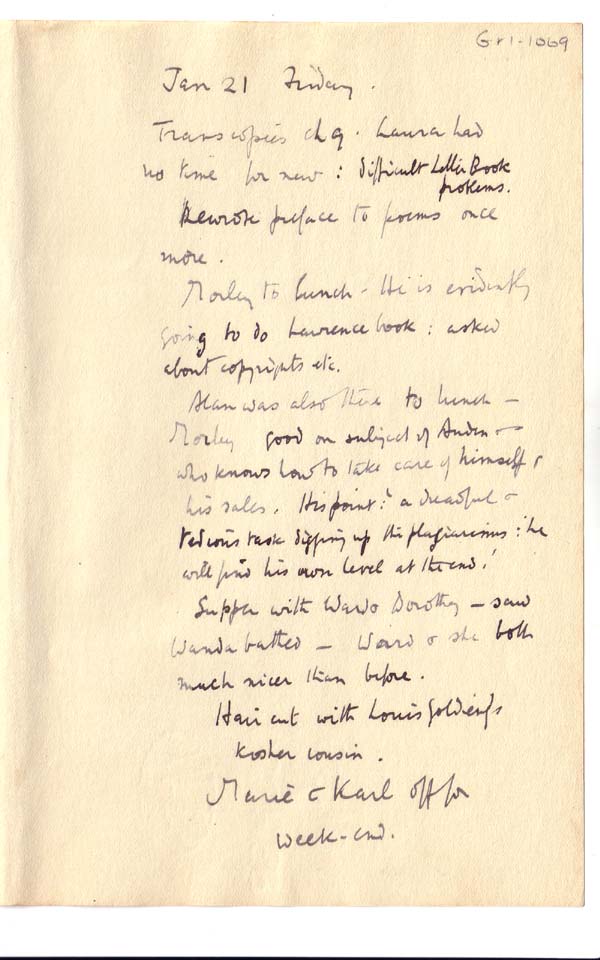 Gr1-1069
Jan 21 Friday.
Trans copies ch 9. Laura had
no time for new : difficult Letter Book
problems.
Rewrote preface to poems once
more.
Morley to lunch - He is evidently
going to do Lawrence book : asked
about copyrights etc.
Alan was also there to lunch -
Morley good on subject of Auden -
who knows how to take care of himself &
his sales. His point : 'a dreadful &
tedious task digging up the plagiarisms : he
will find his own level at the end.'
Supper with Ward & Dorothy - saw
Wanda bathed - Ward & she both
much nicer than before.
Hair cut with Louis Golding's
kosher cousin.
Marie & Karl off for
week-end.